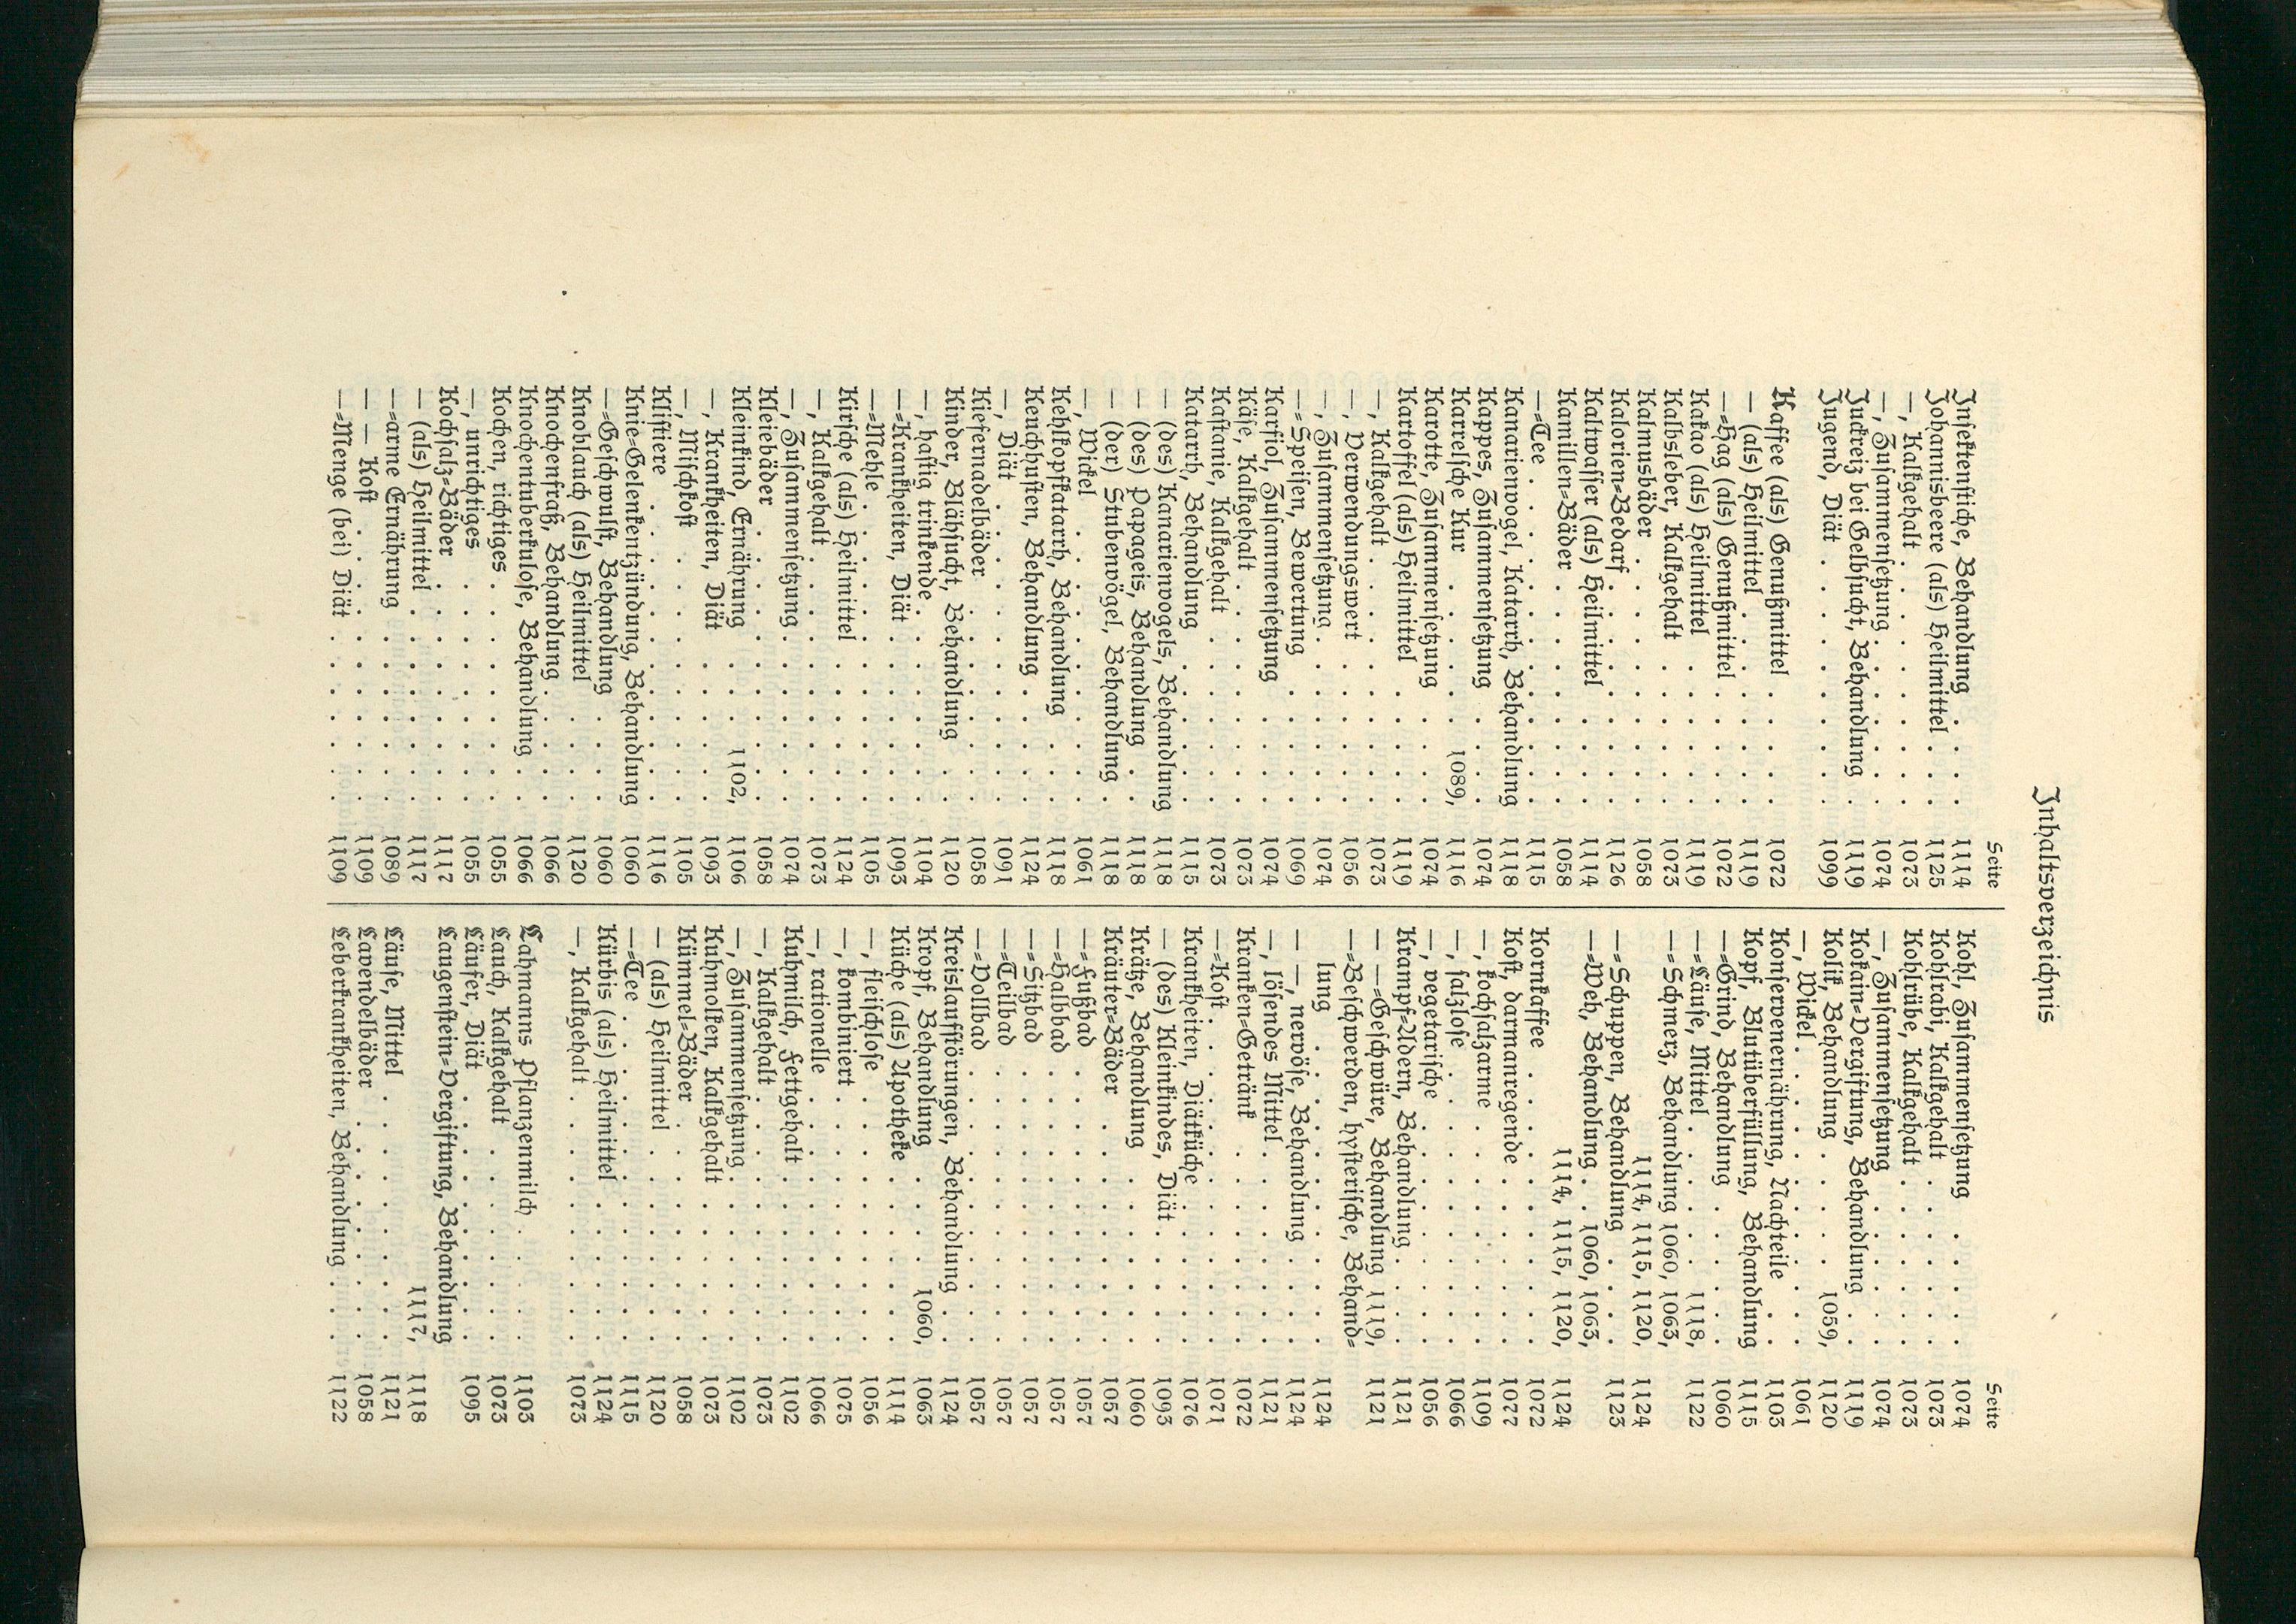 Inhaltsverzeichnis
Seite
Insektenstiche, Behandlung . . . . 1114
Johannisbeere (als) Heilmittel . . . 1125
—, Kalkgehalt . . . . . . . . . 1073
—, Zusammensetzung . . . . . . . 1074
Juckreiz bei Gelbsucht, Behandlung . 1119
Jugend, Diät . . . . . . . . . 1099
Kaffee (als) Genußmittel . . . . . 1072
— (als) Heilmittel . . . . . . . 1119
—=Hag (als) Genußmittel . . . . . 1072
Kakao (als) Heilmittel . . . . . . 1119
Kalbsleber, Kalkgehalt . . . . . . 1073
Kalmusbäder . . . . . . . . . 1058
Kalorien=Bedarf . . . . . . . . 1126
Kaltwasser (als) Heilmittel . . . . 1114
Kamillen=Bäder . . . . . . . . 1058
—=Tee . . . . . . . . . . . 1115
Kanarienvogel, Katarrh, Behandlung 1118
Kappes, Zusammensetzung . . . . 1074
Karrelsche Kur . . . . . . 1089, 1116
Karotte, Zusammensetzung . . . . 1074
Kartoffel (als) Heilmittel . . . . . 1119
—, Kalkgehalt . . . . . . . . . 1073
—, Verwendungswert . . . . . . 1056
—, Zusammensetzung . . . . . . . 1074
—=Speisen, Bewertung . . . . . . 1069
Karfiol, Zusammensetzung . . . . 1074
Käse, Kalkgehalt . . . . . . . . 1073
Kastanie, Kalkgehalt . . . . . . . 1073
Katarrh, Behandlung . . . . . . . 1115
— (des) Kanarienvogels, Behandlung 1118
— (des) Papageis, Behandlung . . 1118
— (der) Stubenvögel, Behandlung . 1118
—, Wickel . . . . . . . . . . 1061
Kehlkopfkatarrh, Behandlung . . . 1118
Keuchhusten, Behandlung . . . . . 1124
—, Diät . . . . . . . . . . . 1091
Kiefernadelbäder . . . . . . . . 1058
Kinder, Blähsucht, Behandlung . . 1120
—, hastig trinkende . . . . . . . 1104
—=Krankheiten, Diät . . . . . . 1093
—=Mehle . . . . . . . . . . . 1105
Kirsche (als) Heilmittel . . . . . 1124
—, Kalkgehalt . . . . . . . . . 1073
—, Zusammensetzung . . . . . . . 1074
Kleiebäder . . . . . . . . . . 1058
Kleinkind, Ernährung . . . 1102, 1106
—, Krankheiten, Diät . . . . . . 1093
—, Mischkost . . . . . . . . . 1105
Klistiere . . . . . . . . . . . 1116
Knie=Gelenkentzündung, Behandlung 1060
—=Geschwulst, Behandlung . . . . 1060
Knoblauch (als) Heilmittel . . . . 1120
Knochenfraß, Behandlung . . . . . 1066
Knochentuberkulose, Behandlung . . 1066
Kochen, richtiges . . . . . . . . 1055
—, unrichtiges . . . . . . . . . 1055
Kochsalz=Bäder . . . . . . . . 1117
— (als) Heilmittel . . . . . . . 1117
—=arme Ernährung . . . . . . . 1089
— — Kost . . . . . . . . . . 1109
—=Menge (bei) Diät . . . . . . . 1109
Seite
Kohl, Zusammensetzung . . . . . 1074
Kohlrabi, Kalkgehalt . . . . . . 1073
Kohlrübe, Kalkgehalt . . . . . . 1073
—, Zusammensetzung . . . . . . . 1074
Kokain=Vergiftung, Behandlung . . 1119
Kolik, Behandlung . . . . . 1059, 1120
—, Wickel . . . . . . . . . . 1061
Konservenernährung, Nachteile . . . 1103
Kopf, Blutüberfüllung, Behandlung 1115
—=Grind, Behandlung . . . . . . 1060
—=Läuse, Mittel . . . . . . 1118, 1122
—=Schmerz, Behandlung 1060, 1063,
1114, 1115, 1120, 1124
—=Schuppen, Behandlung . . . . . 1123
—=Weh, Behandlung . . 1060, 1063,
1114, 1115, 1120, 1124
Kornkaffee . . . . . . . . . . 1072
Kost, darmanregende . . . . . . . 1077
—, kochsalzarme . . . . . . . . 1109
—, salzlose . . . . . . . . . . 1066
—, vegetarische . . . . . . . . . 1056
Krampf=Adern, Behandlung . . . . 1121
— —=Geschwüre, Behandlung 1119, 1121
—=Beschwerden, hysterische, Behand=
lung . . . . . . . . . . . 1124
— —, nervöse, Behandlung . . . . 1124
—, lösendes Mittel . . . . . . . 1121
Kranken=Getränk . . . . . . . . 1072
—=Kost . . . . . . . . . . . 1071
Krankheiten, Diätküche . . . . . . 1076
— (des) Kleinkindes, Diät . . . . 1093
Krätze, Behandlung . . . . . . . 1060
Kräuter=Bäder . . . . . . . . . 1057
—=Fußbad . . . . . . . . . . 1057
—=Halbbad . . . . . . . . . . 1057
—=Sitzbad . . . . . . . . . . 1057
—=Teilbad . . . . . . . . . . 1057
—=Vollbad . . . . . . . . . . 1057
Kreislaufstörungen, Behandlung . . 1124
Kropf, Behandlung . . . . 1060, 1063
Küche (als) Apotheke . . . . . . 1114
—, fleischlose . . . . . . . . . 1056
—, kombiniert . . . . . . . . . 1075
—, rationelle . . . . . . . . . 1066
Kuhmilch, Fettgehalt . . . . . . 1102
—, Kalkgehalt . . . . . . . . . 1073
—, Zusammensetzung . . . . . . . 1102
Kuhmolken, Kalkgehalt . . . . . . 1073
Kümmel=Bäder . . . . . . . . 1058
— (als) Heilmittel . . . . . . . 1120
—=Tee . . . . . . . . . . . 1115
Kürbis (als) Heilmittel . . . . . . 1124
—, Kalkgehalt . . . . . . . . . 1073
Lahmanns Pflanzenmilch . . . . . 1103
Lauch, Kalkgehalt . . . . . . . . 1073
Läufer, Diät . . . . . . . . . 1095
Laugenstein=Vergiftung, Behandlung
1117, 1118
Läuse, Mittel . . . . . . . . . 1121
Lavendelbäder . . . . . . . . . 1058
Leberkrankheiten, Behandlung . . . 1122